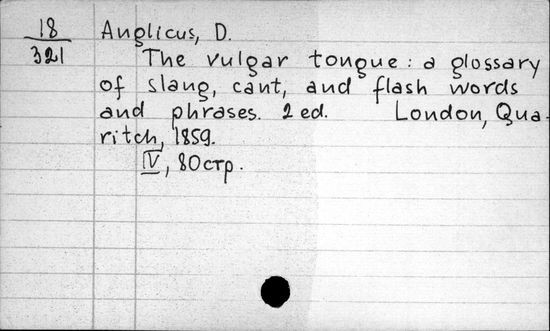 18 Anglicus, D.
321 The vulgar tongue: a glossary
of slang, cant, and flash words
and phrases. 2 ed. London, Qua-
ritch, 1859.
IV, 80 стр.